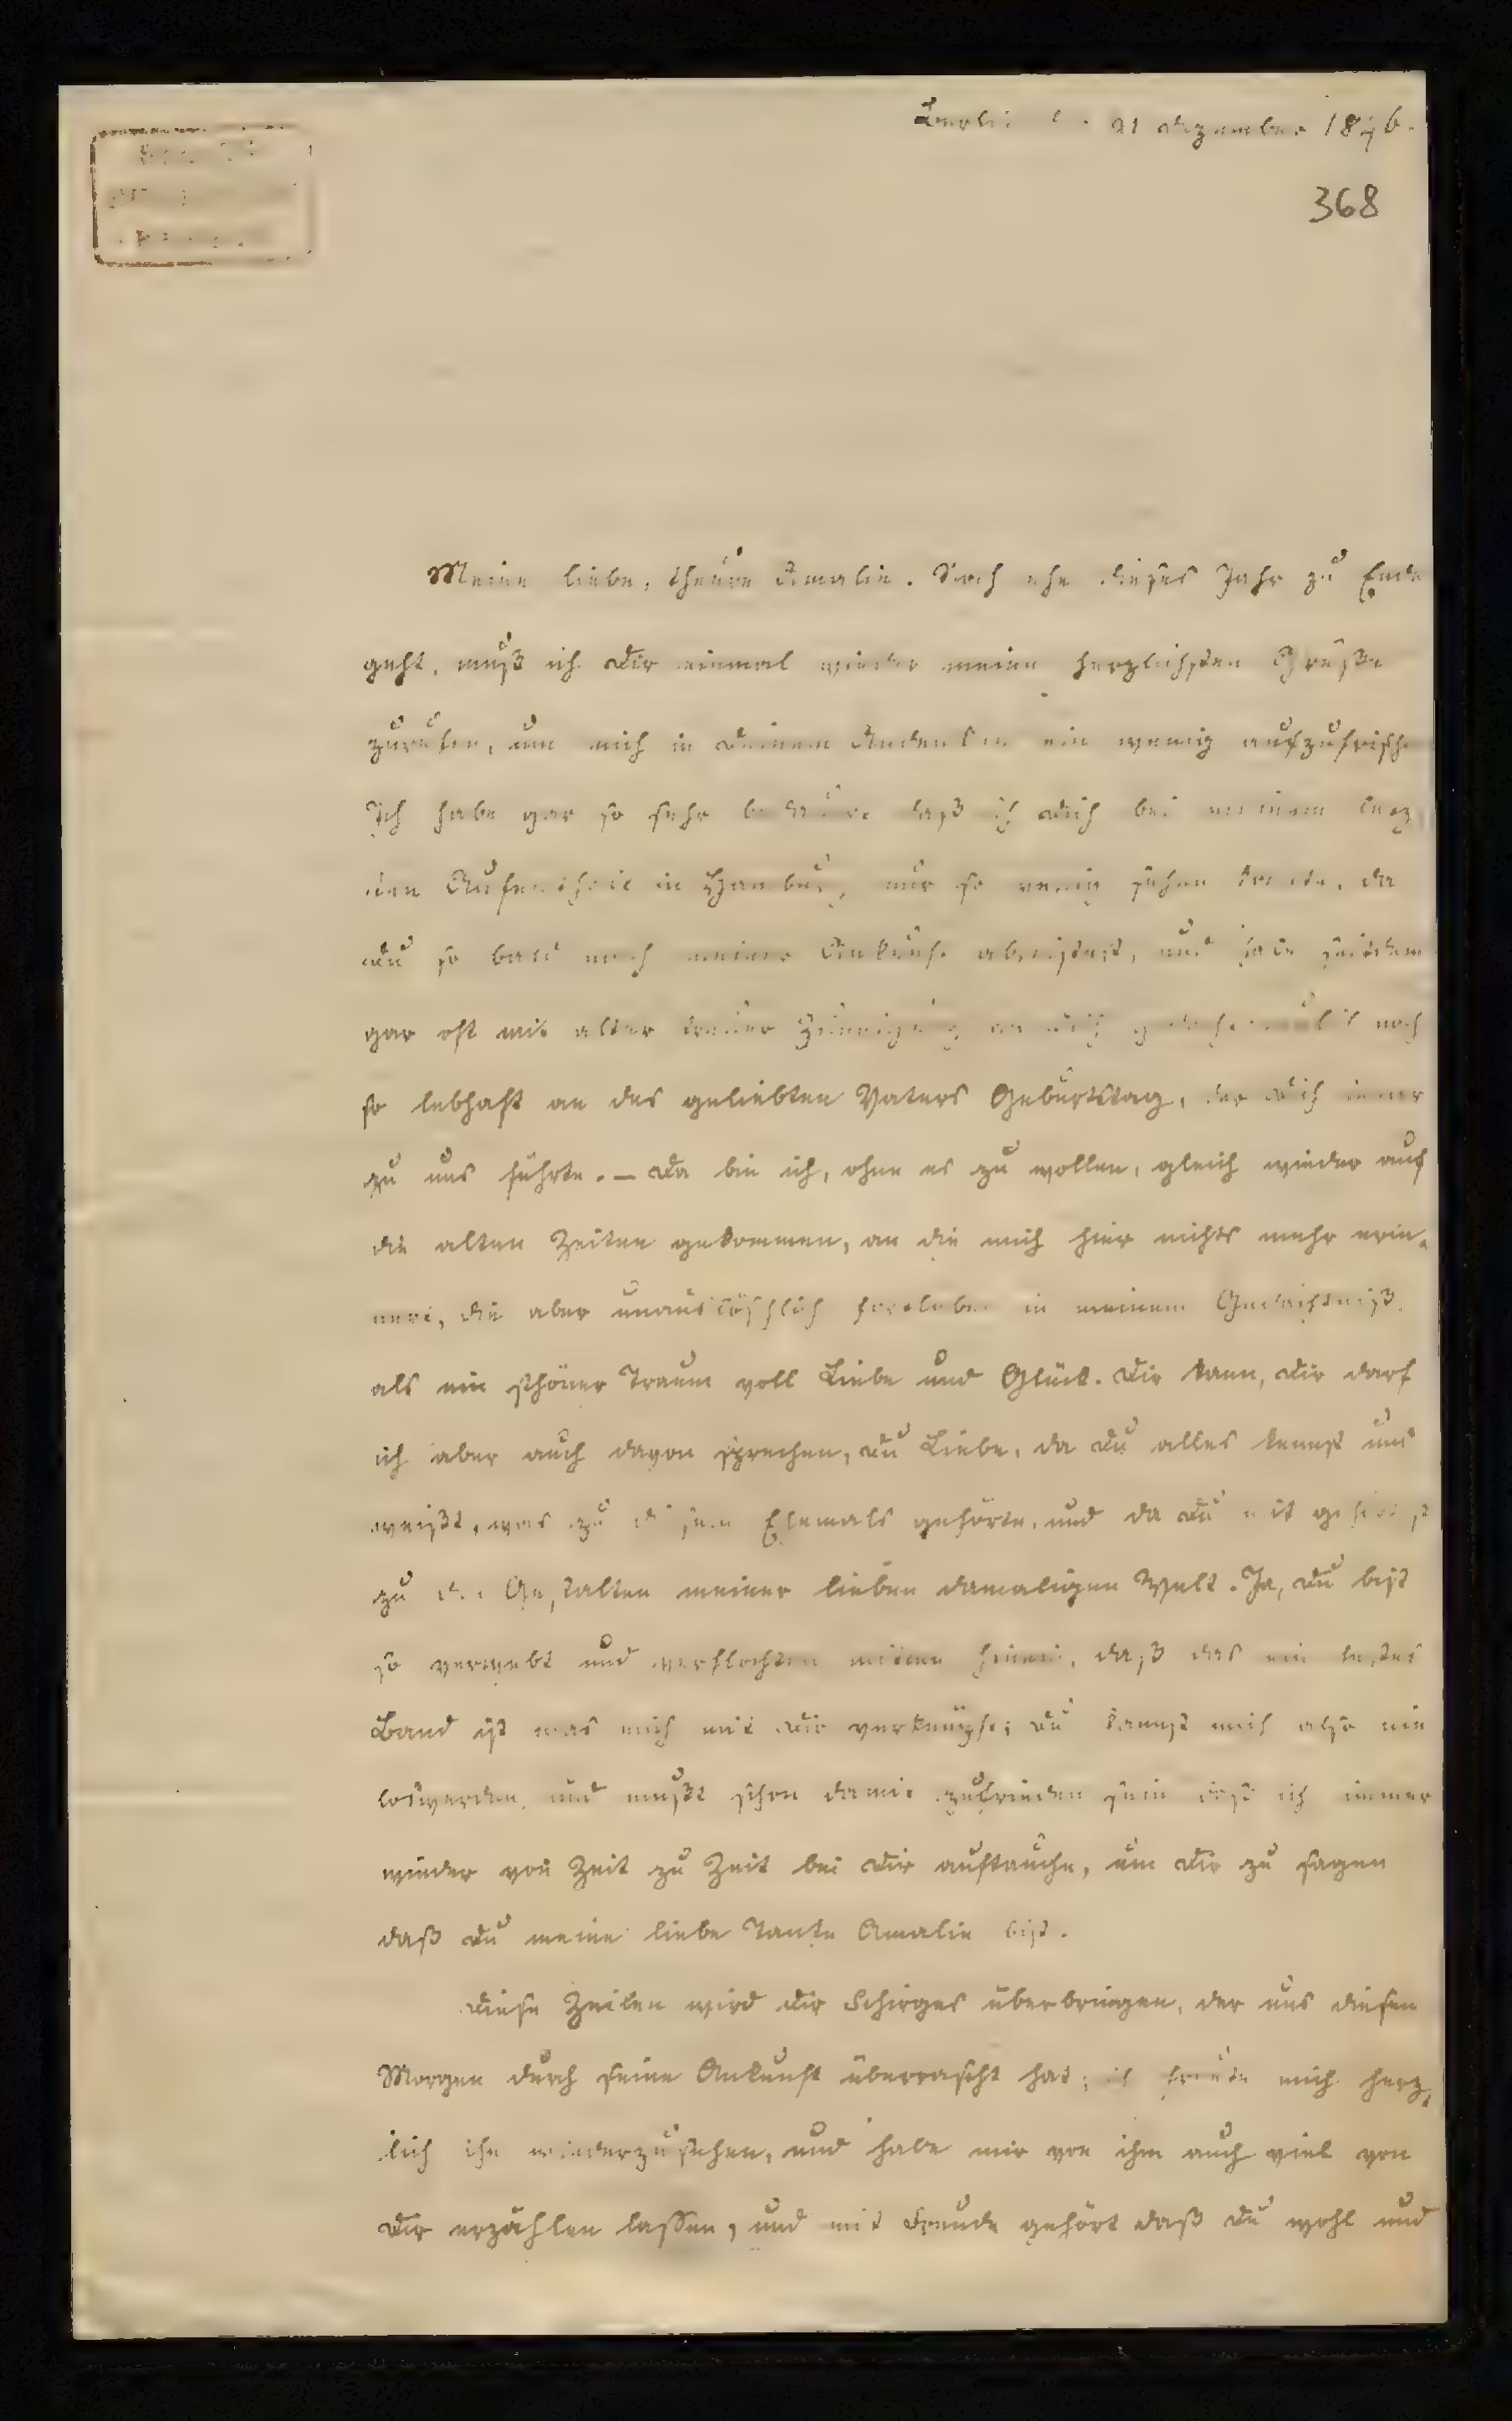 Berlin 21 Dezember 1846.
368
Meine liebe, theure Amalie. Noch ehe dieses Jahr zu Ende
geht, muß ich Dir einmal wieder meine herzlichsten Grüße
zurufen, um mich in Deinem Andenken ein wenig aufzufrischen
Ich habe gar so sehr daß ich Dich bei meinem letz
ten Aufenthalt in Hamburg nur so wenig sehen konnte, da
Du so bald nach meiner Ankunft abreistest, und habe seitdem
gar oft mit alter treuer Zuneigung an Dich noch
so lebhaft an des geliebten Vaters Geburtstag, der Dich immer
zu uns führte. – Da bin ich, ohne es zu wollen, gleich wieder auf
die alten Zeiten gekommen, an die mich hier nichts mehr erin-
nert, die aber unauslöschlich fortleben in meinem Gedächtniß
als ein schöner Traum voll Liebe und Glück. Dir kann, Dir darf
ich aber auch davon sprechen, Du Liebe, da Du alles kennst und
weißt, was zu diesem Ehemals gehörte, und da Du mit gehörst
zu den Gestalten meiner lieben damaligen Welt. Ja, Du bist
so verwebt und verflochten mitten hinein, daß das ein festes
Band ist was mich mit Dir verknüpft; Du kannst mich also nie
loswerden, und mußt schon damit zufrieden sein daß ich immer
wieder von Zeit zu Zeit bei Dir auftauche, um Dir zu sagen
daß Du meine liebe Tante Amalie bist.
Diese Zeilen wird Dir Schirges überbringen, der uns diesen
Morgen durch seine Ankunft überrascht hat; ich freute mich herz-
lich ihn wiederzusehen, und habe mir von ihm auch viel von
Dir erzählen lassen, und mit Freude gehört daß Du wohl und